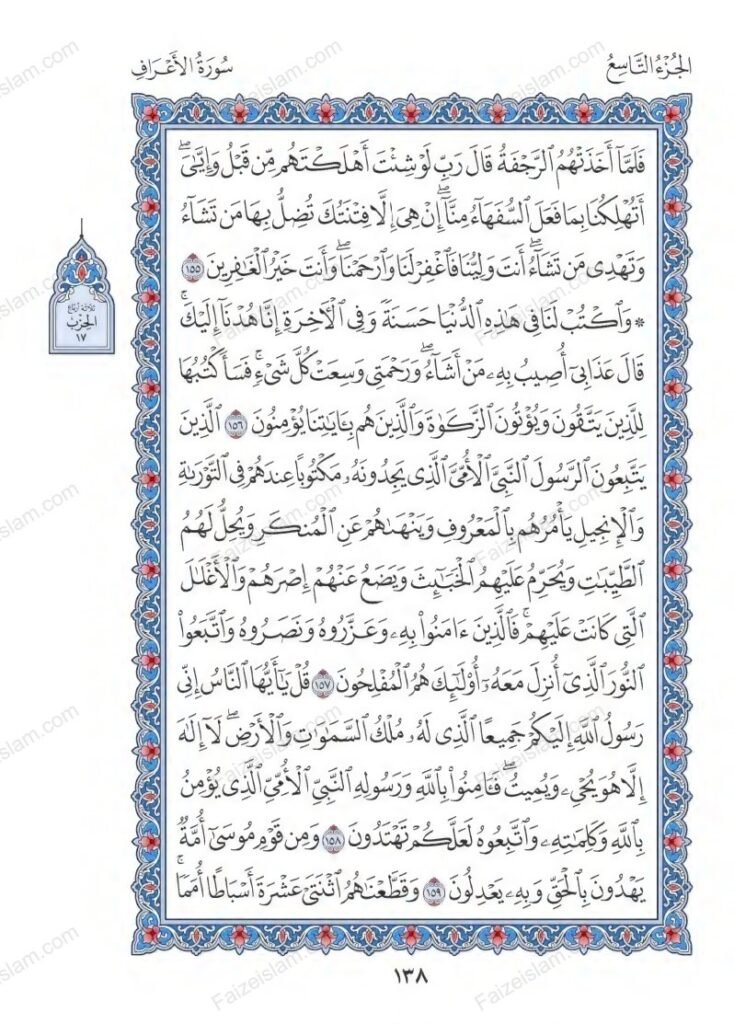 الجُزْءُ التَّاسِعُ
سُورَةُ الأَعْرَافِ
فَلَمَّآ أَخَذَتْهُمُ ٱلرَّجْفَةُ قَالَ رَبِّ لَوْ شِئْتَ أَهْلَكْتَهُم مِّن قَبْلُ وَإِيَّـٰىَۖ
أَتُهْلِكُنَا بِمَا فَعَلَ ٱلسُّفَهَآءُ مِنَّآۖ إِنْ هِىَ إِلَّا فِتْنَتُكَ تُضِلُّ بِهَا مَن تَشَآءُ
وَتَهْدِى مَن تَشَآءُۖ أَنتَ وَلِيُّنَا فَٱغْفِرْ لَنَا وَٱرْحَمْنَاۖ وَأَنتَ خَيْرُ ٱلْغَـٰفِرِينَ ١٥٥
* وَٱكْتُبْ لَنَا فِى هَـٰذِهِ ٱلدُّنْيَا حَسَنَةً وَفِى ٱلْـَٔاخِرَةِ إِنَّا هُدْنَآ إِلَيْكَۚ
ثلاثة أرباع
الحِزْبُ
١٧
قَالَ عَذَابِىٓ أُصِيبُ بِهِۦ مَنْ أَشَآءُۖ وَرَحْمَتِى وَسِعَتْ كُلَّ شَىْءٍۚ فَسَأَكْتُبُهَا
لِلَّذِينَ يَتَّقُونَ وَيُؤْتُونَ ٱلزَّكَوٰةَ وَٱلَّذِينَ هُم بِـَٔايَـٰتِنَا يُؤْمِنُونَ ١٥٦ ٱلَّذِينَ
يَتَّبِعُونَ ٱلرَّسُولَ ٱلنَّبِىَّ ٱلْأُمِّىَّ ٱلَّذِى يَجِدُونَهُۥ مَكْتُوبًا عِندَهُمْ فِى ٱلتَّوْرَىٰةِ
وَٱلْإِنجِيلِ يَأْمُرُهُم بِٱلْمَعْرُوفِ وَيَنْهَىٰهُمْ عَنِ ٱلْمُنكَرِ وَيُحِلُّ لَهُمُ
ٱلطَّيِّبَـٰتِ وَيُحَرِّمُ عَلَيْهِمُ ٱلْخَبَـٰٓئِثَ وَيَضَعُ عَنْهُمْ إِصْرَهُمْ وَٱلْأَغْلَـٰلَ
ٱلَّتِى كَانَتْ عَلَيْهِمْۚ فَٱلَّذِينَ ءَامَنُوا۟ بِهِۦ وَعَزَّرُوهُ وَنَصَرُوهُ وَٱتَّبَعُوا۟
ٱلنُّورَ ٱلَّذِىٓ أُنزِلَ مَعَهُۥٓ أُو۟لَـٰٓئِكَ هُمُ ٱلْمُفْلِحُونَ ١٥٧ قُلْ يَـٰٓأَيُّهَا ٱلنَّاسُ إِنِّى
رَسُولُ ٱللَّهِ إِلَيْكُمْ جَمِيعًا ٱلَّذِى لَهُۥ مُلْكُ ٱلسَّمَـٰوَٰتِ وَٱلْأَرْضِۖ لَآ إِلَـٰهَ
إِلَّا هُوَ يُحْىِۦ وَيُمِيتُۖ فَـَٔامِنُوا۟ بِٱللَّهِ وَرَسُولِهِ ٱلنَّبِىِّ ٱلْأُمِّىِّ ٱلَّذِى يُؤْمِنُ
بِٱللَّهِ وَكَلِمَـٰتِهِۦ وَٱتَّبِعُوهُ لَعَلَّكُمْ تَهْتَدُونَ ١٥٨ وَمِن قَوْمِ مُوسَىٰٓ أُمَّةٌ
يَهْدُونَ بِٱلْحَقِّ وَبِهِۦ يَعْدِلُونَ ١٥٩ وَقَطَّعْنَـٰهُمُ ٱثْنَتَىْ عَشْرَةَ أَسْبَاطًا أُمَمًاۚ
١٣٨
Faizeislam.com